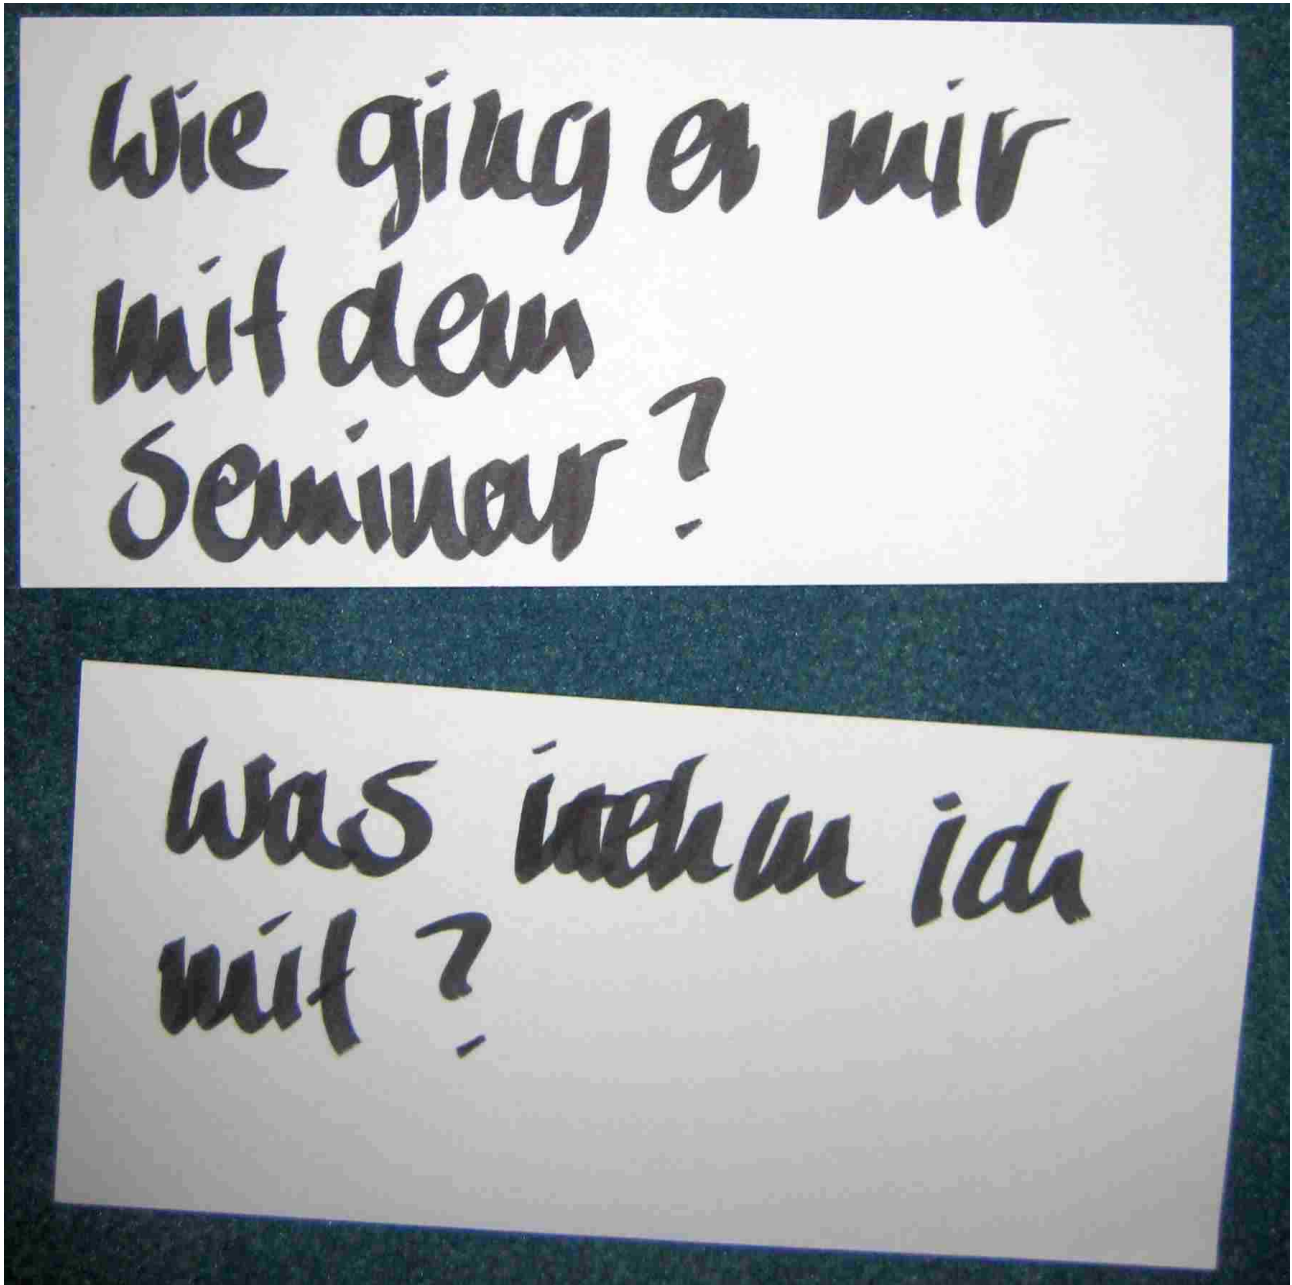 Wie ging es mir
mit dem
Seminar?
Was nehm ich
mit?